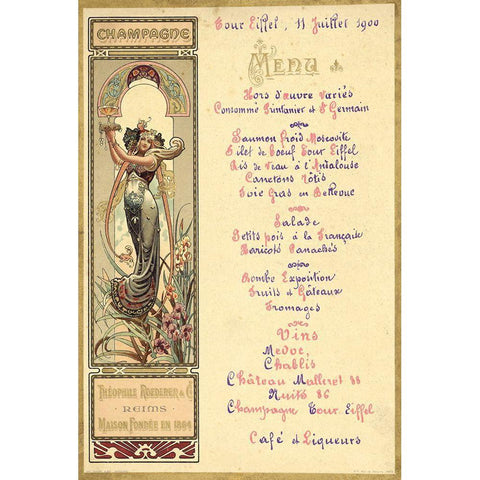 CHAMPAGNE
THÉOPHILE ROEDERER & Cº
REIMS
MAISON FONDÉE EN 1864
Tour Eiffel, 11 Juillet 1900
MENU
Hors d'œuvre Variés
Consommé Printanier et St Germain
Saumon Froid Moscovite
Filet de Bœuf Tour Eiffel
Ris de Veau à l'Andalouse
Canetons Rôtis
Foie Gras en Bellevue
Salade
Petits pois à la Française
Haricots Panachés
Bombe Exposition
Fruits et Gâteaux
Fromages
Vins
Medoc,
Chablis
Château Malleret 88
Nuits 86
Champagne Tour Eiffel
Café et Liqueurs